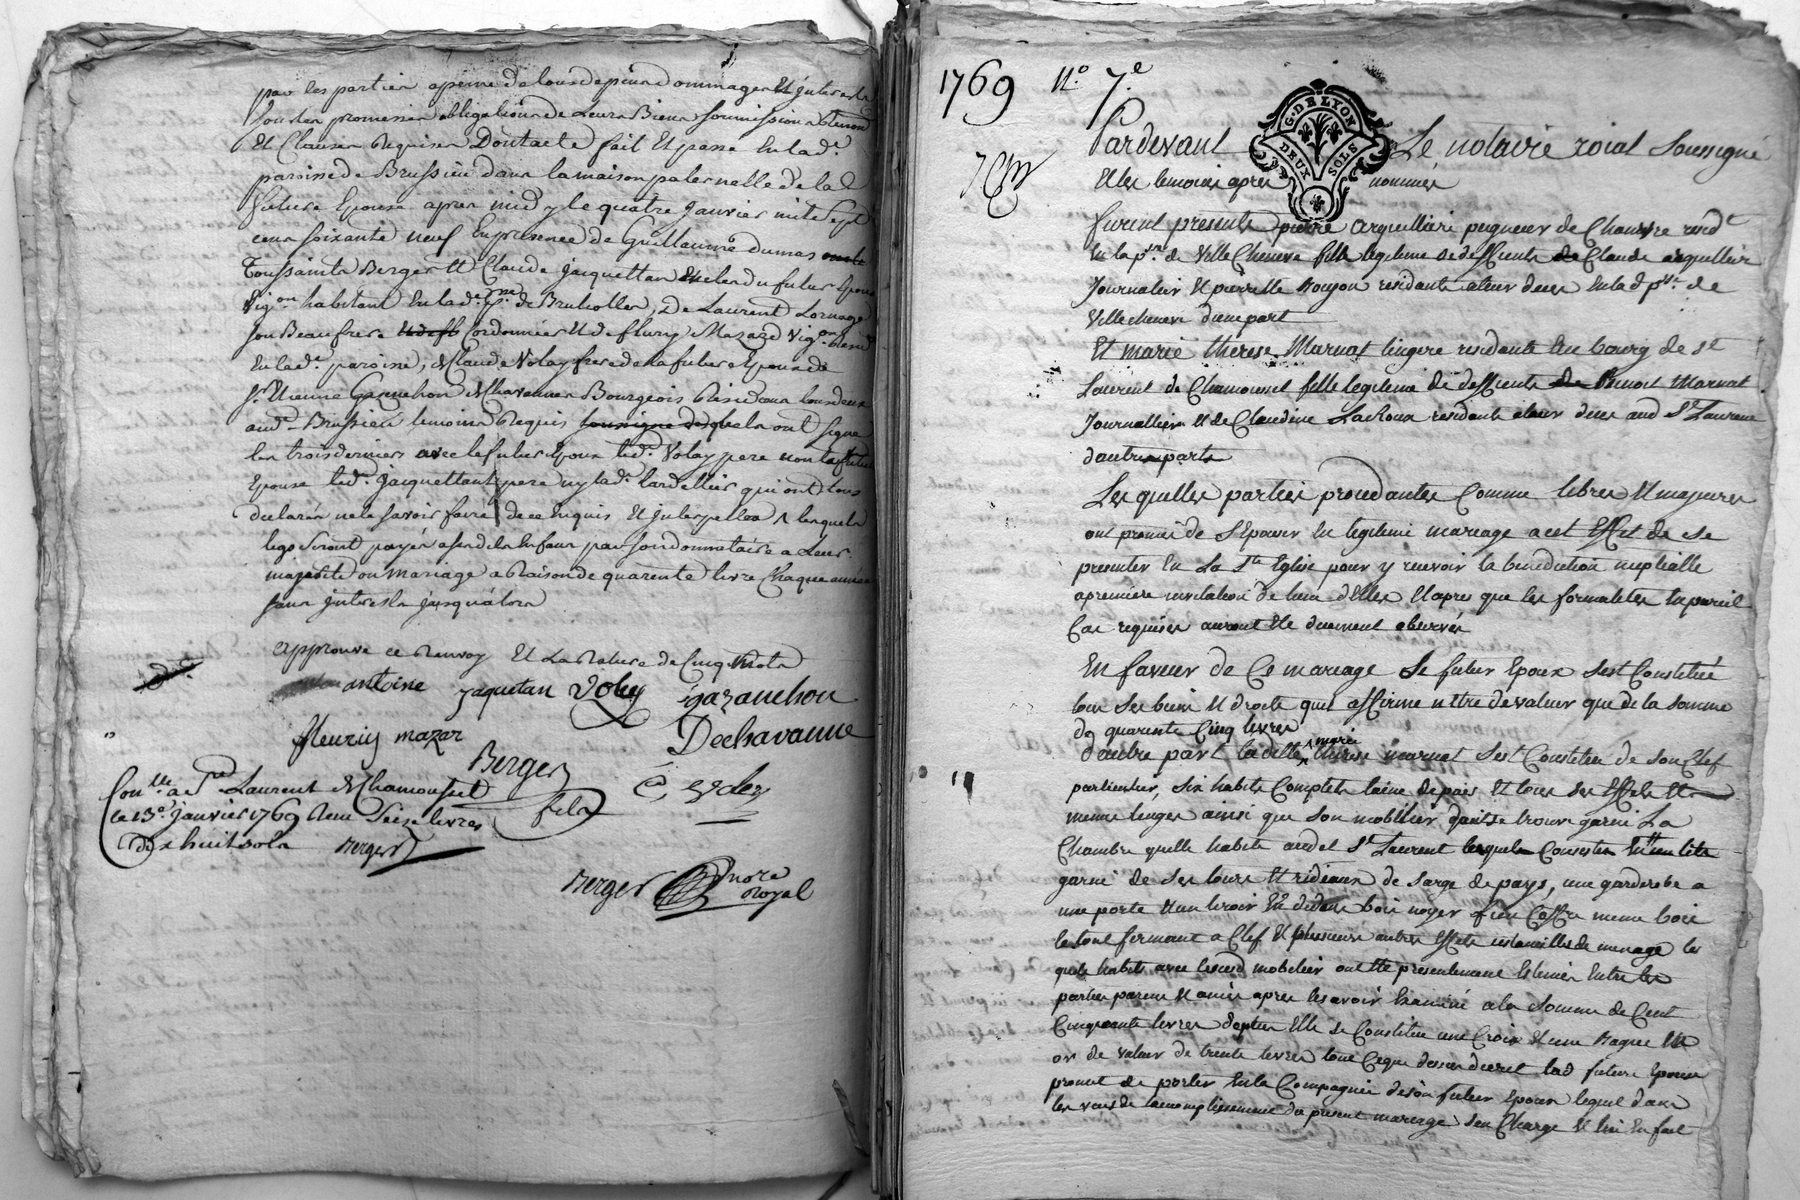 par les parties a peine de tous depens dommages et jnterests
sous les promesses obligations de leurs Biens soumissions
et Clauses Requises Dont acte fait et passe en lad.e
paroisse de Brussieu dans la maison paternelle de lad
future Epouse apres midy le quatre janvier mile sept
cens soixante neuf En presence de Guillaume dumas
Toussaints Berger et Claude jaquettan du futur Epoux
vig.on habitant En lad.e de Brullolles, De Laurent Lornage
son Beaufrere Cordonnier et de fleury Mazard vig.on
En lad.e paroisse, & Claude Volay frere de la future Epouse de
s.r Etienne Garanchon Bourgeois Residans tous deux
aud. Brussieu temoins Requis ont signé
les trois derniers avec le futur Epoux led. Volay pere non la future
Epouse led. jaquettant pere ny lad. tardellier qui ont tous
declarés ne le savoir faire de ce Enquis et jnterpellés lesquels
legs seront payés par son donnataire a Leur
majorité ou mariage a Raison de quarente livre Chaque année
sans jnterests jusqu'alors
approuvé ce Renvoy et La Rature de Cinq mots
antoine jaquetan Volay garanchon
Dechavanne
fleuriy mazar
Berger
fils
Con.lle a s.t Laurent de Chamousset
le 13.e janvier 1769 Recu Seize livres
dix huit sols Berger
Berger nore
Royal
1769 N.o 7.e
G. DE LYON
DEUX SOLS
Pardevant Le notaire roial soussigné
et les temoins apres nommés
furent presents pierre arquilliere peigneur de Chanvre resid.t
en la p.sse de Ville Cheneve fils legitime de deffients de Claude arquillier
Journalier et pierrette Boujon residants a leur deces en lad p.sse de
Villecheneve d'une part
Et marie therese Marnat lingere residante en bourg de s.t
Laurent de Chamousset fille legitime de deffients de Benoit Marnat
Journallier et de Claudine Lacroux residants a leur deces aud S.t Laurent
d'autres parts
Lesquelles parties procedantes Comme libres et majeures
ont promis de s'Epouser En legitime mariage a cet Effet de se
presenter En La S.te Eglise pour y recevoir la benediction nuptialle
a premiere invitation de l'un d'Elles et apres que les formalités En pareil
Cas requises auront Eté duement observés
En faveur de Ce mariage Le futur Epoux s'est Constitué
tous ses biens et droits qu'il affirme n'etre de valeur que de la somme
de quarente Cinq livres
d'autre part laditte marie therese marnat s'est Constituée de son Chef
particulier, six habits Complets laine de païs et tous ses Effets et
menus linges ainsi que son mobilier dont se trouve garni La
Chambre quelle habite aud S.t Laurent lesquels Consistes En un lit
garni de ses tours et rideaux de sarge de pays, une garderobe a
une porte et un tiroir En dedans bois noyer un Coffre meme bois
le tout fermant a Clef et plusieurs autres Effets ustancilles de menage les
quels habits avec lesusd mobilier ont Eté presentement Estimés Entre les
parties parens et amis apres les avoir Examiné a la somme de Cent
Cinquante livres de plus Elle se Constitue une Croix et une Bague En
or de valeur de trente livres tout Ceque dessus decrit lad future Epouse
promet de porter En la Compagnie de son futur Epoux lequel dans
les vues de laccomplissement du present mariage s'en Charge et lui En fait